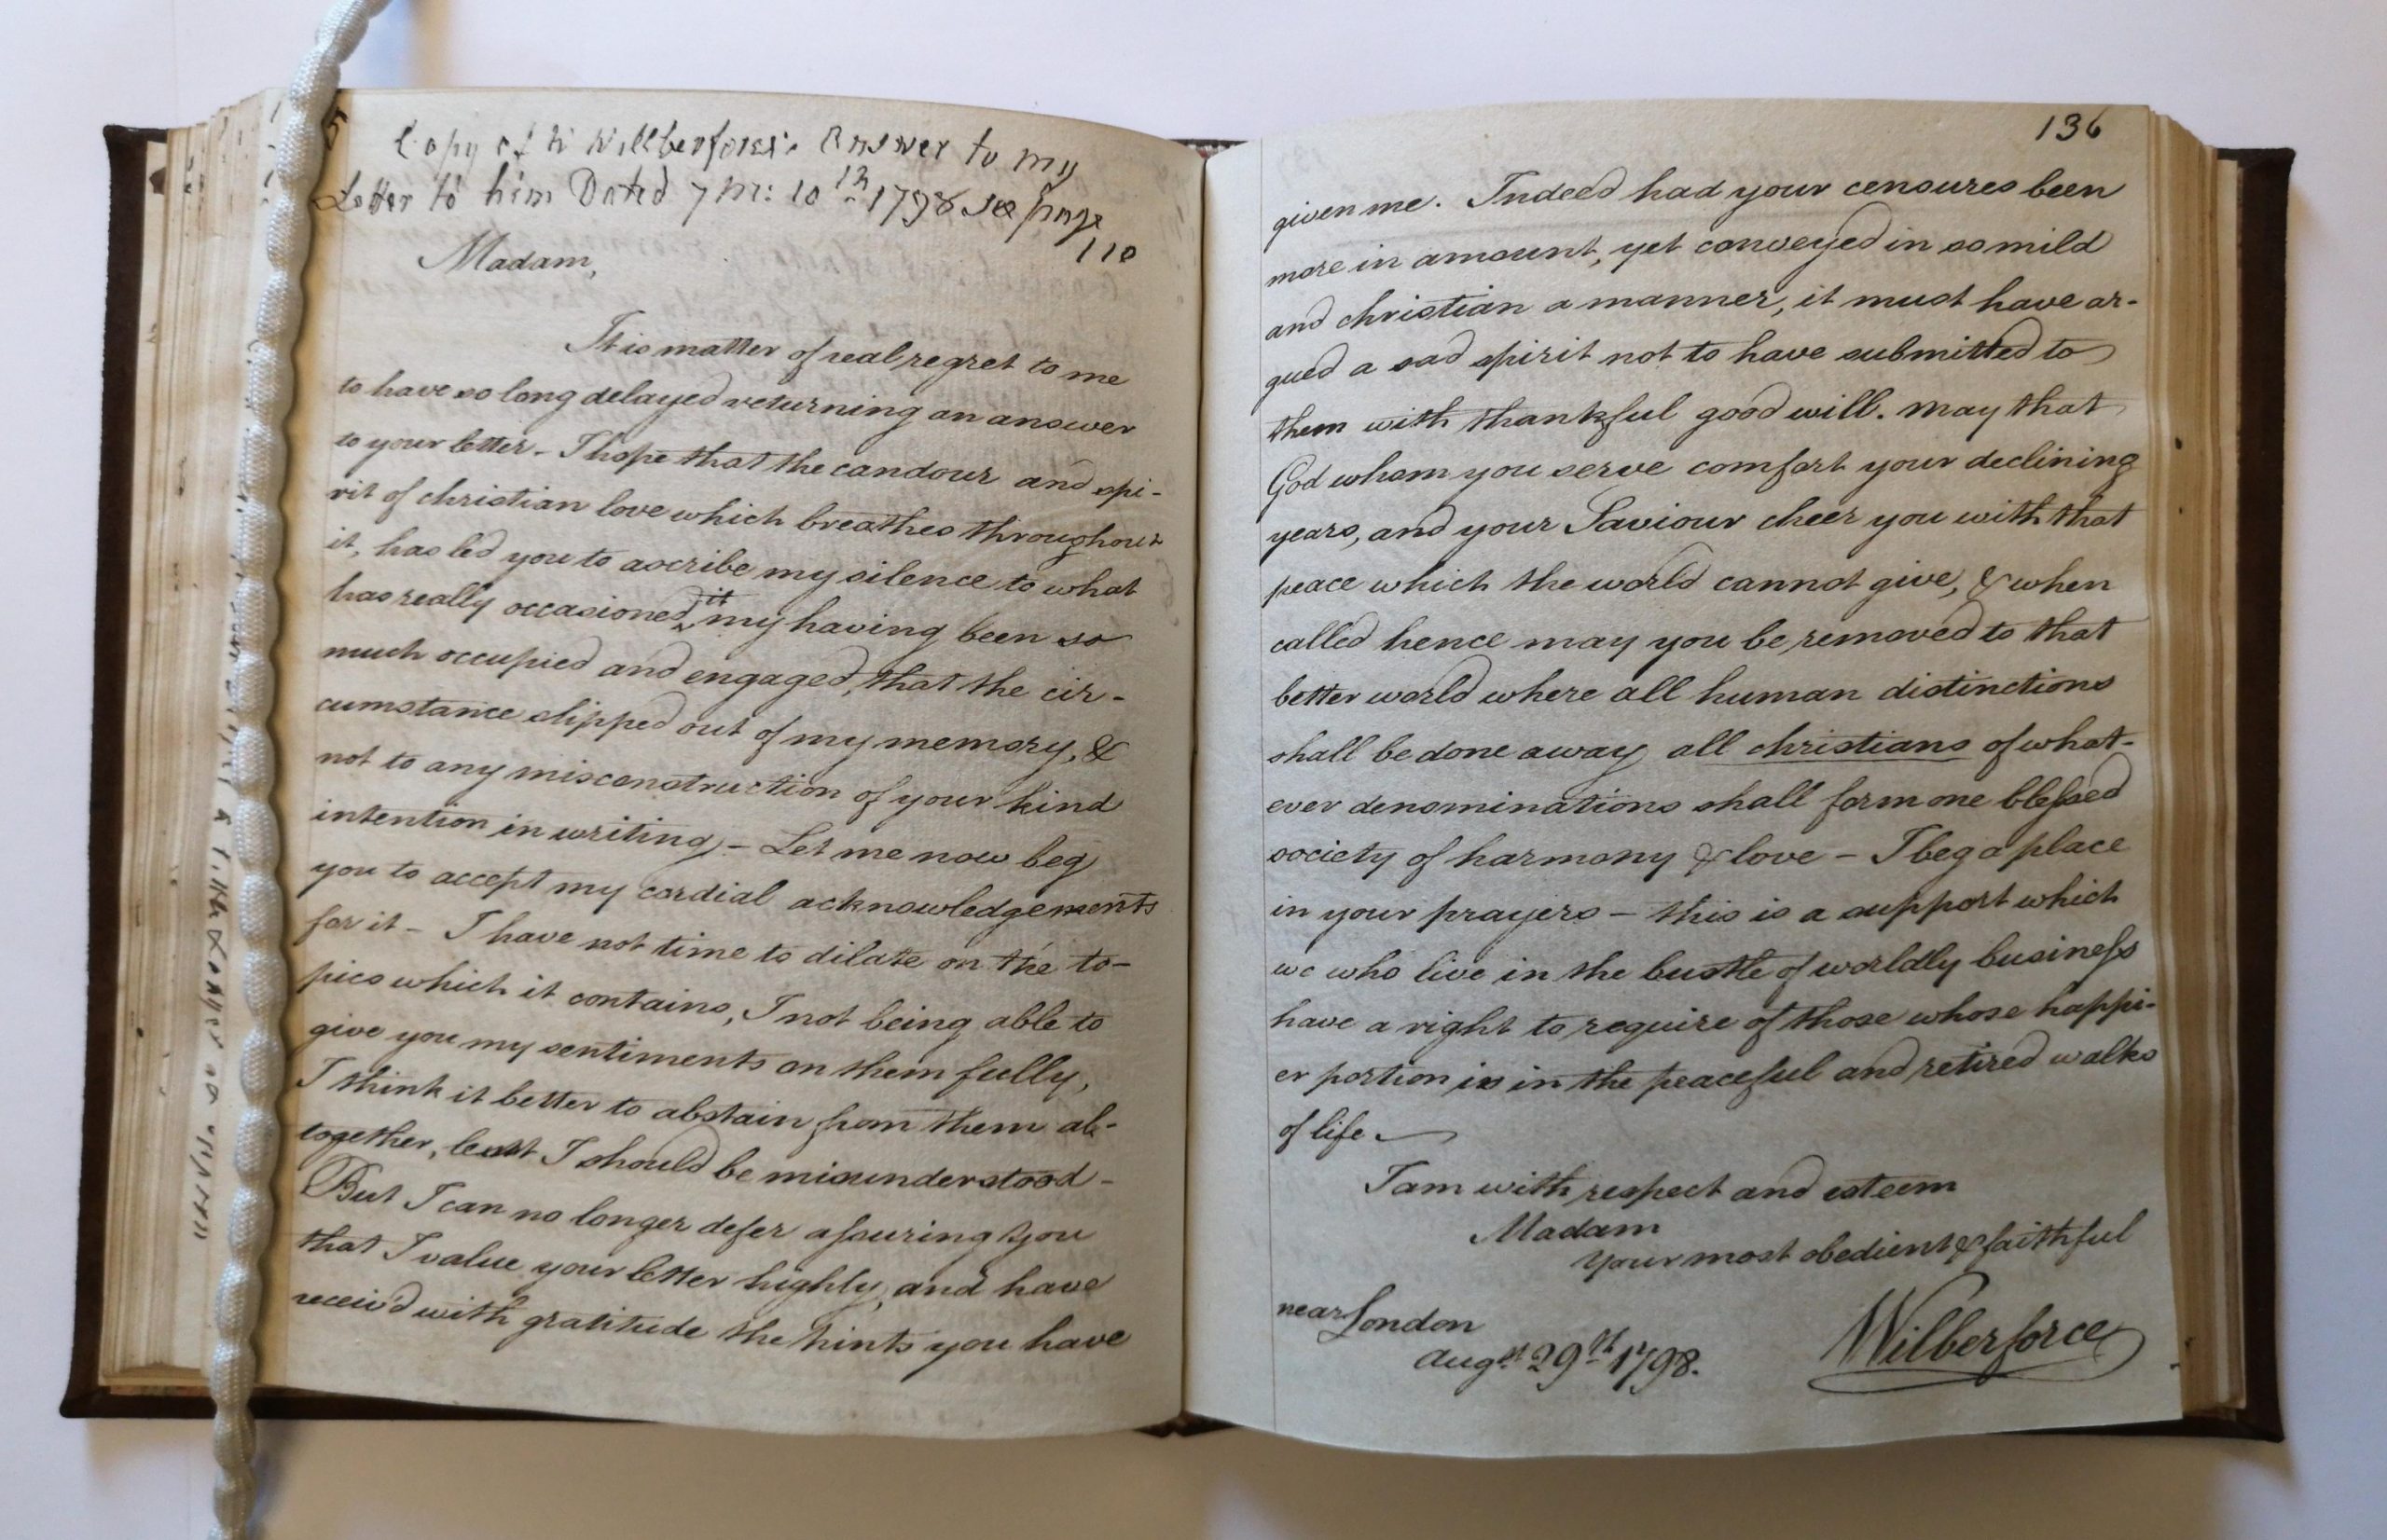 5
Copy of W Willberforses Answer to my
Letter to him Dated 7 m: 10th 1798 see page
110
Madam,
It is matter of real regret to me
to have so long delayed returning an answer
to your letter - I hope that the candour and spi-
rit of christian love which breathes throughout
it, has led you to ascribe my silence to what
has really occasioned it, my having been so
much occupied and engaged, that the cir-
cumstance slipped out of my memory, &
not to any misconstruction of your kind
intention in writing, - Let me now beg
you to accept my cordial acknowledgements
for it - I have not time to dilate on the to-
pics which it contains, I not being able to
give you my sentiments on them fully,
I think it better to abstain from them al-
together, least I should be misunderstood -
But I can no longer defer assuring you
that I value your letter highly, and have
receiv'd with gratitude the hints you have
136
given me. Indeed had your censures been
more in amount, yet conveyed in so mild
and christian a manner, it must have ar-
gued a sad spirit not to have submitted to
them with thankful good will. may that
God whom you serve comfort your declining
years, and your Saviour cheer you with that
peace which the world cannot give, & when
called hence may you be removed to that
better world where all human distinctions
shall be done away, all christians of what-
ever denominations shall form one blessed
society of harmony & love - I beg a place
in your prayers - this is a support which
we who live in the bustle of worldly business
have a right to require of those whose happi-
er portion is in the peaceful and retired walks
of life.
I am with respect and esteem
Madam
Your most obedient & faithful
near London
Augst 29th 1798.
W Wilberforce